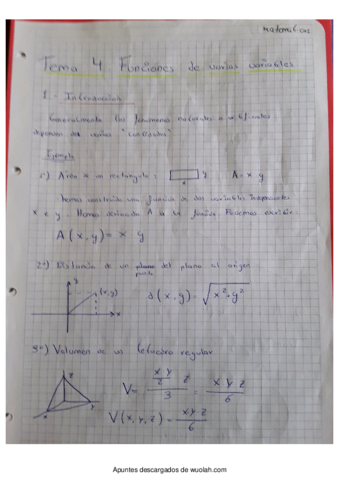 Matemáticas
Tema 4 Funciones de varias variables
1.- Introducción
Generalmente los fenómenos naturales o artificiales
dependen de varias "cualidades"
Ejemplo
1º) Area de un rectángulo: y A= x y
x
hemos construido una función de dos variables independientes
x e y. Hemos A a la función. Podemos escribir
A(x,y)= x y
2º) Distancia de un plano del plano al origen
punto
y
(x,y) d(x,y)= √x²+y²
x
3º) Volumen de un tetraedro regular
Z
x
y
V= (xy/2 · z)/3 = xyz/6
V(x,y,z)= xyz/6
Apuntes descargados de wuolah.com